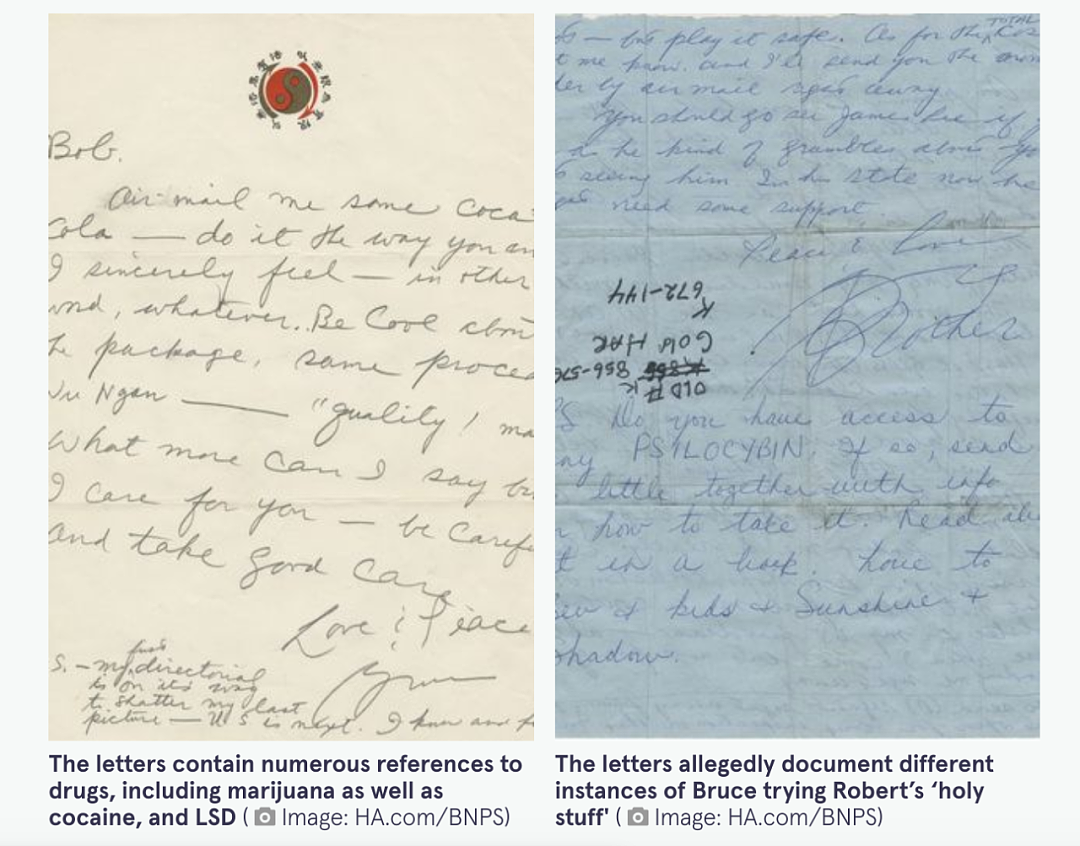 Bob.
Air mail me some Coca
Cola — do it the way you an
I sincerely feel — in other
word, whatever.. Be Cool abou
he package, same proced
Wu Ngan — "quality! ma
What more can I say bu
I care for you — be Carefu
And take good care
Love & Peace
S. — my first directorial
is on it's way
to shatter my last
picture — U S is next. I know
The letters contain numerous references to
drugs, including marijuana as well as
cocaine, and LSD ( Image: HA.com/BNPS)
TOTAL
— but play it safe. As for the Cos
t me know. and I'll send you the mon
der by air mail right away.
You should go see James Lee if
as he kind of grumbles about yo
seeing him In his state now he
need some support
Peace & Love
Brother
672-144
K
Gold HAR
856-576
OLD # K
S Do you have access to
ny PSILOCYBIN, If so, send
little together with info
n how to take it. Read abo
t in a book. Love to
Bev & kids & Sunshine &
hadow.
The letters allegedly document different
instances of Bruce trying Robert's 'holy
stuff' ( Image: HA.com/BNPS)